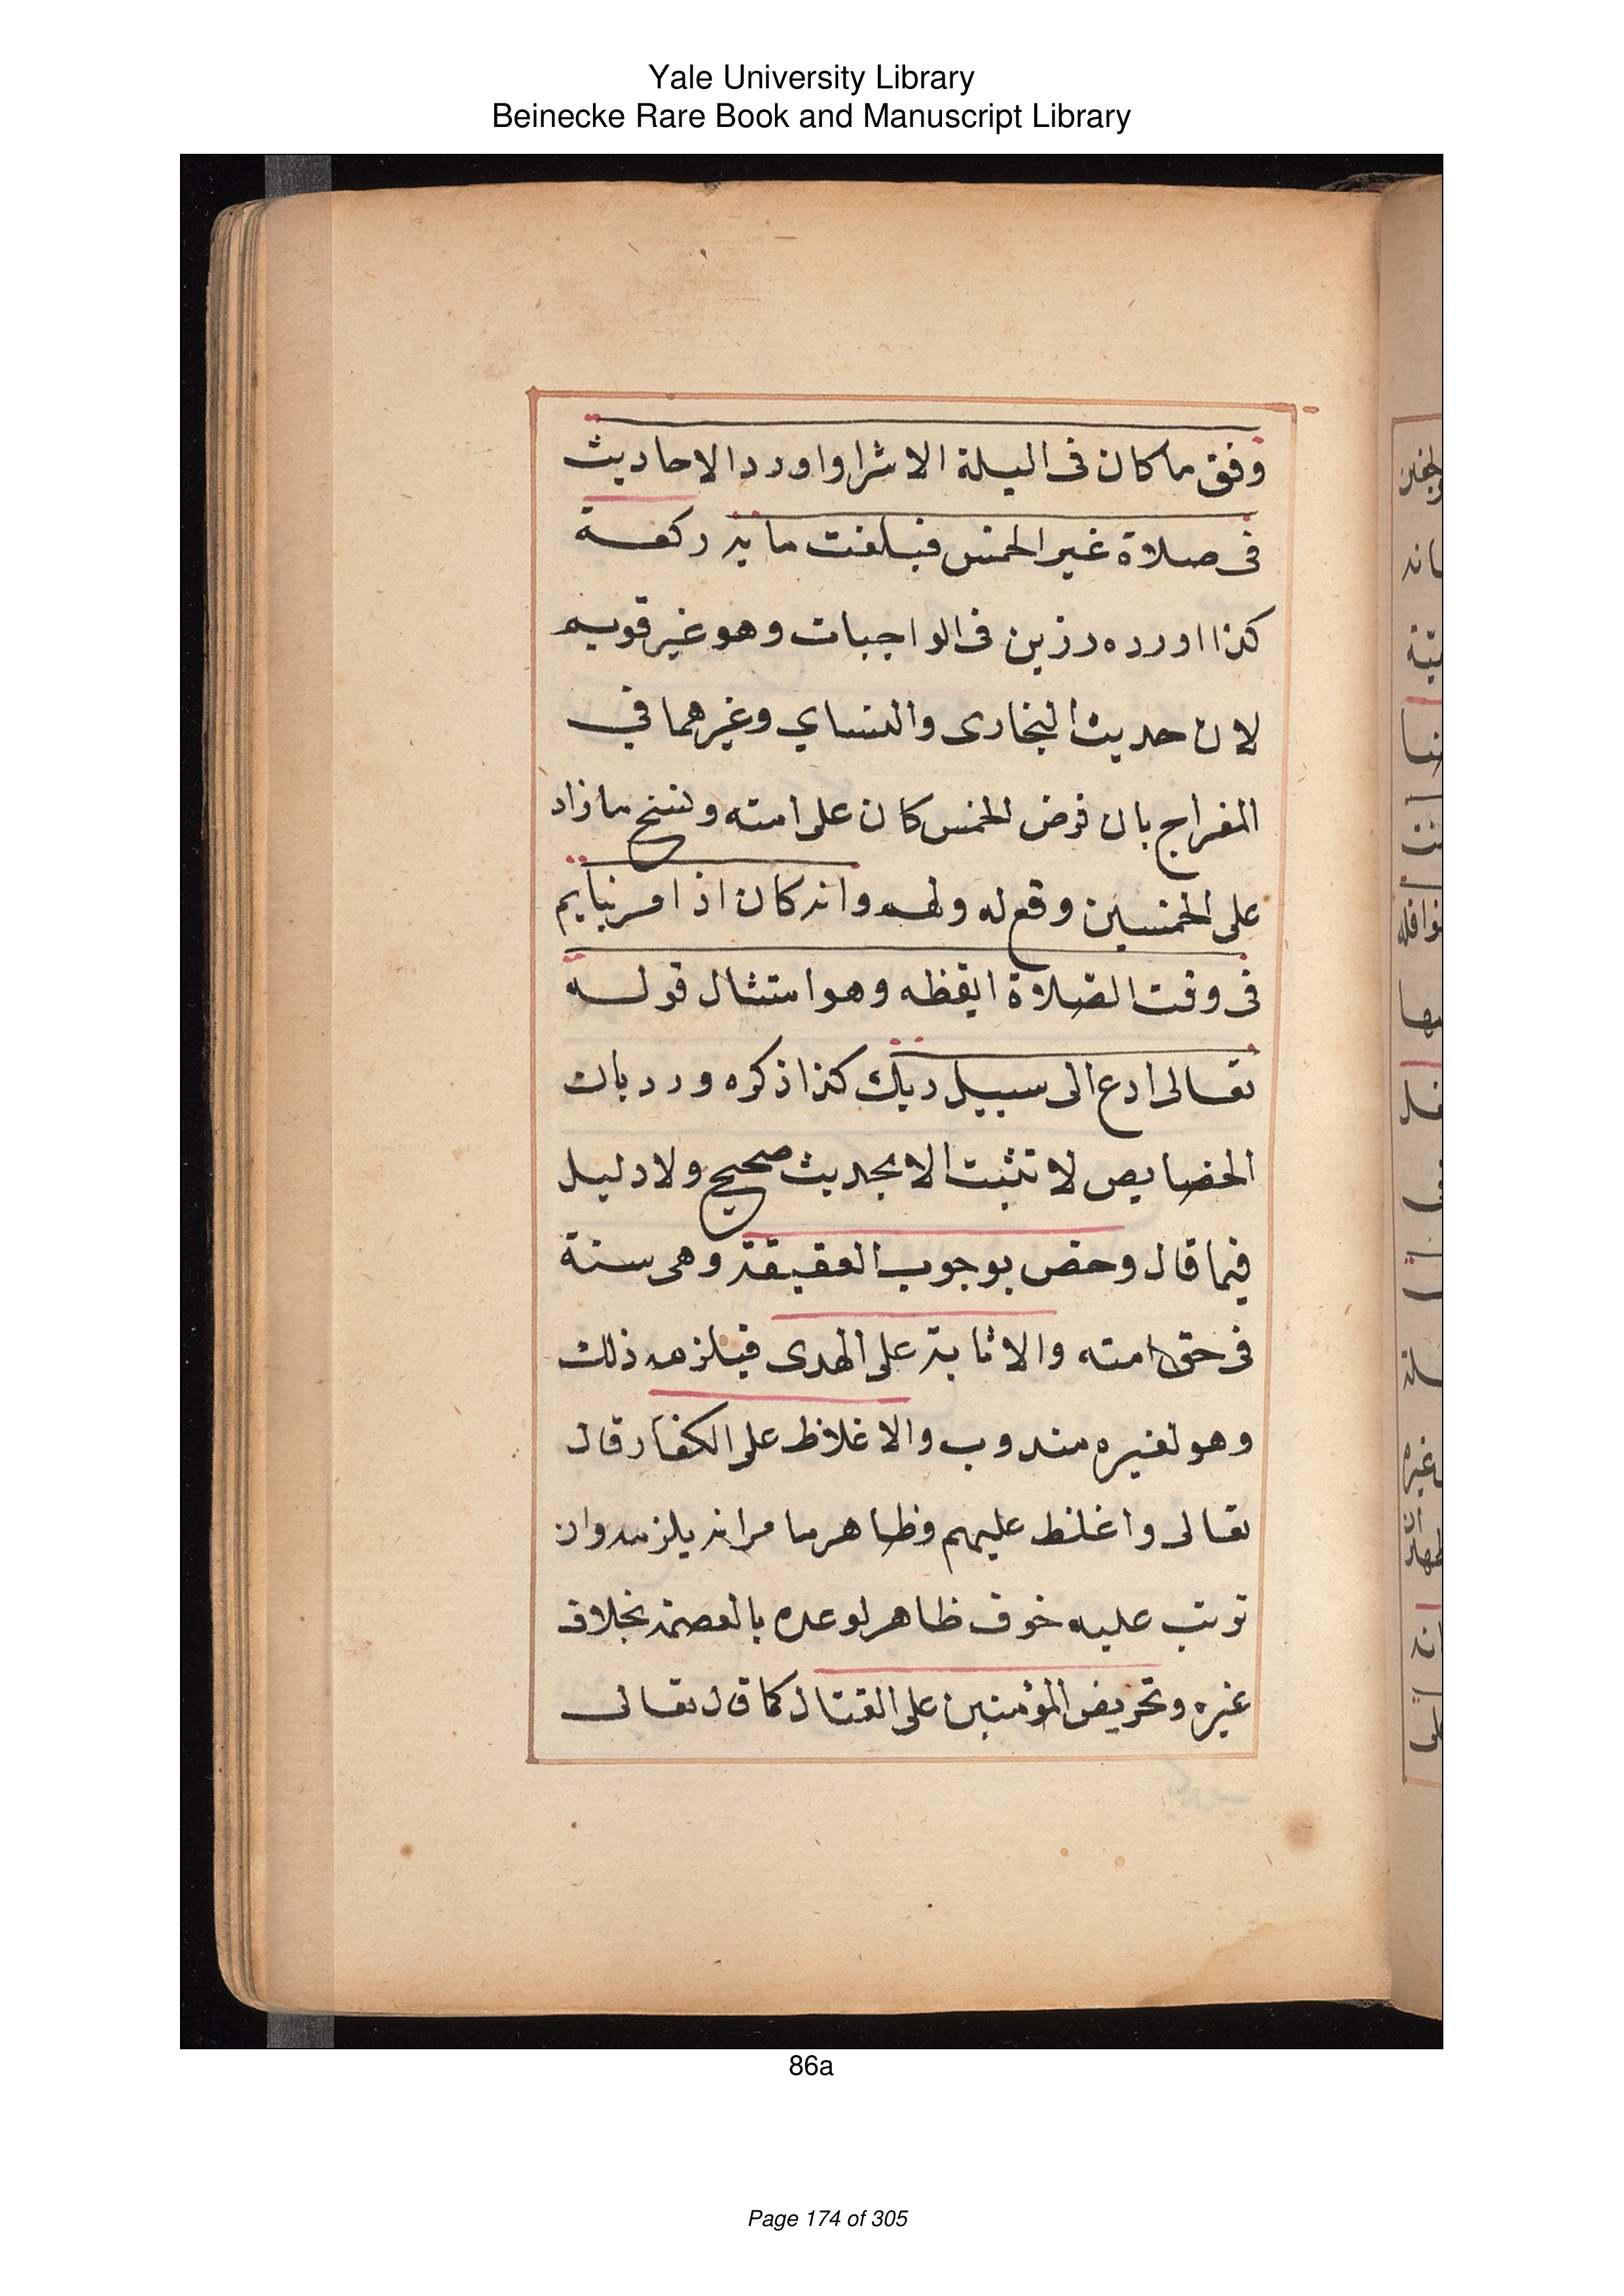 Yale University Library
Beinecke Rare Book and Manuscript Library
وفق ما كان فى اليلة الاسرا واورد الاحاديث
فى صلاة غير الخمس فبلغت مايه ركعة
كذا اورده رزين فى الواجبات وهو غير قويم
لان حديث البخارى والنساي وغيرهما في
المعراج بان فرض الخمس كان على امته ونسخ ما زاد
على الخمسين وقع له ولهم وانه كان اذا مر بنايم
فى وقت الصلاة ايقظه وهو امتثال قوله
تعالى ادع الى سبيل ربك كذا ذكره ورد بان
الخصايص لا تثبت الا بحديث صحيح ولا دليل
فيما قال وخص بوجوب العقيقة وهى سنة
فى حق امته والاثابة على الهدى فيلزمه ذلك
وهو لغيره مندوب والاغلاظ على الكفار قال
تعالى واغلظ عليهم وظاهر ما مر انه يلزمه وان
ترتب عليه خوف ظاهر لوعده بالعصمة بخلاف
غيره وتحريض المؤمنين على القتال كما قال تعالى
86a
Page 174 of 305